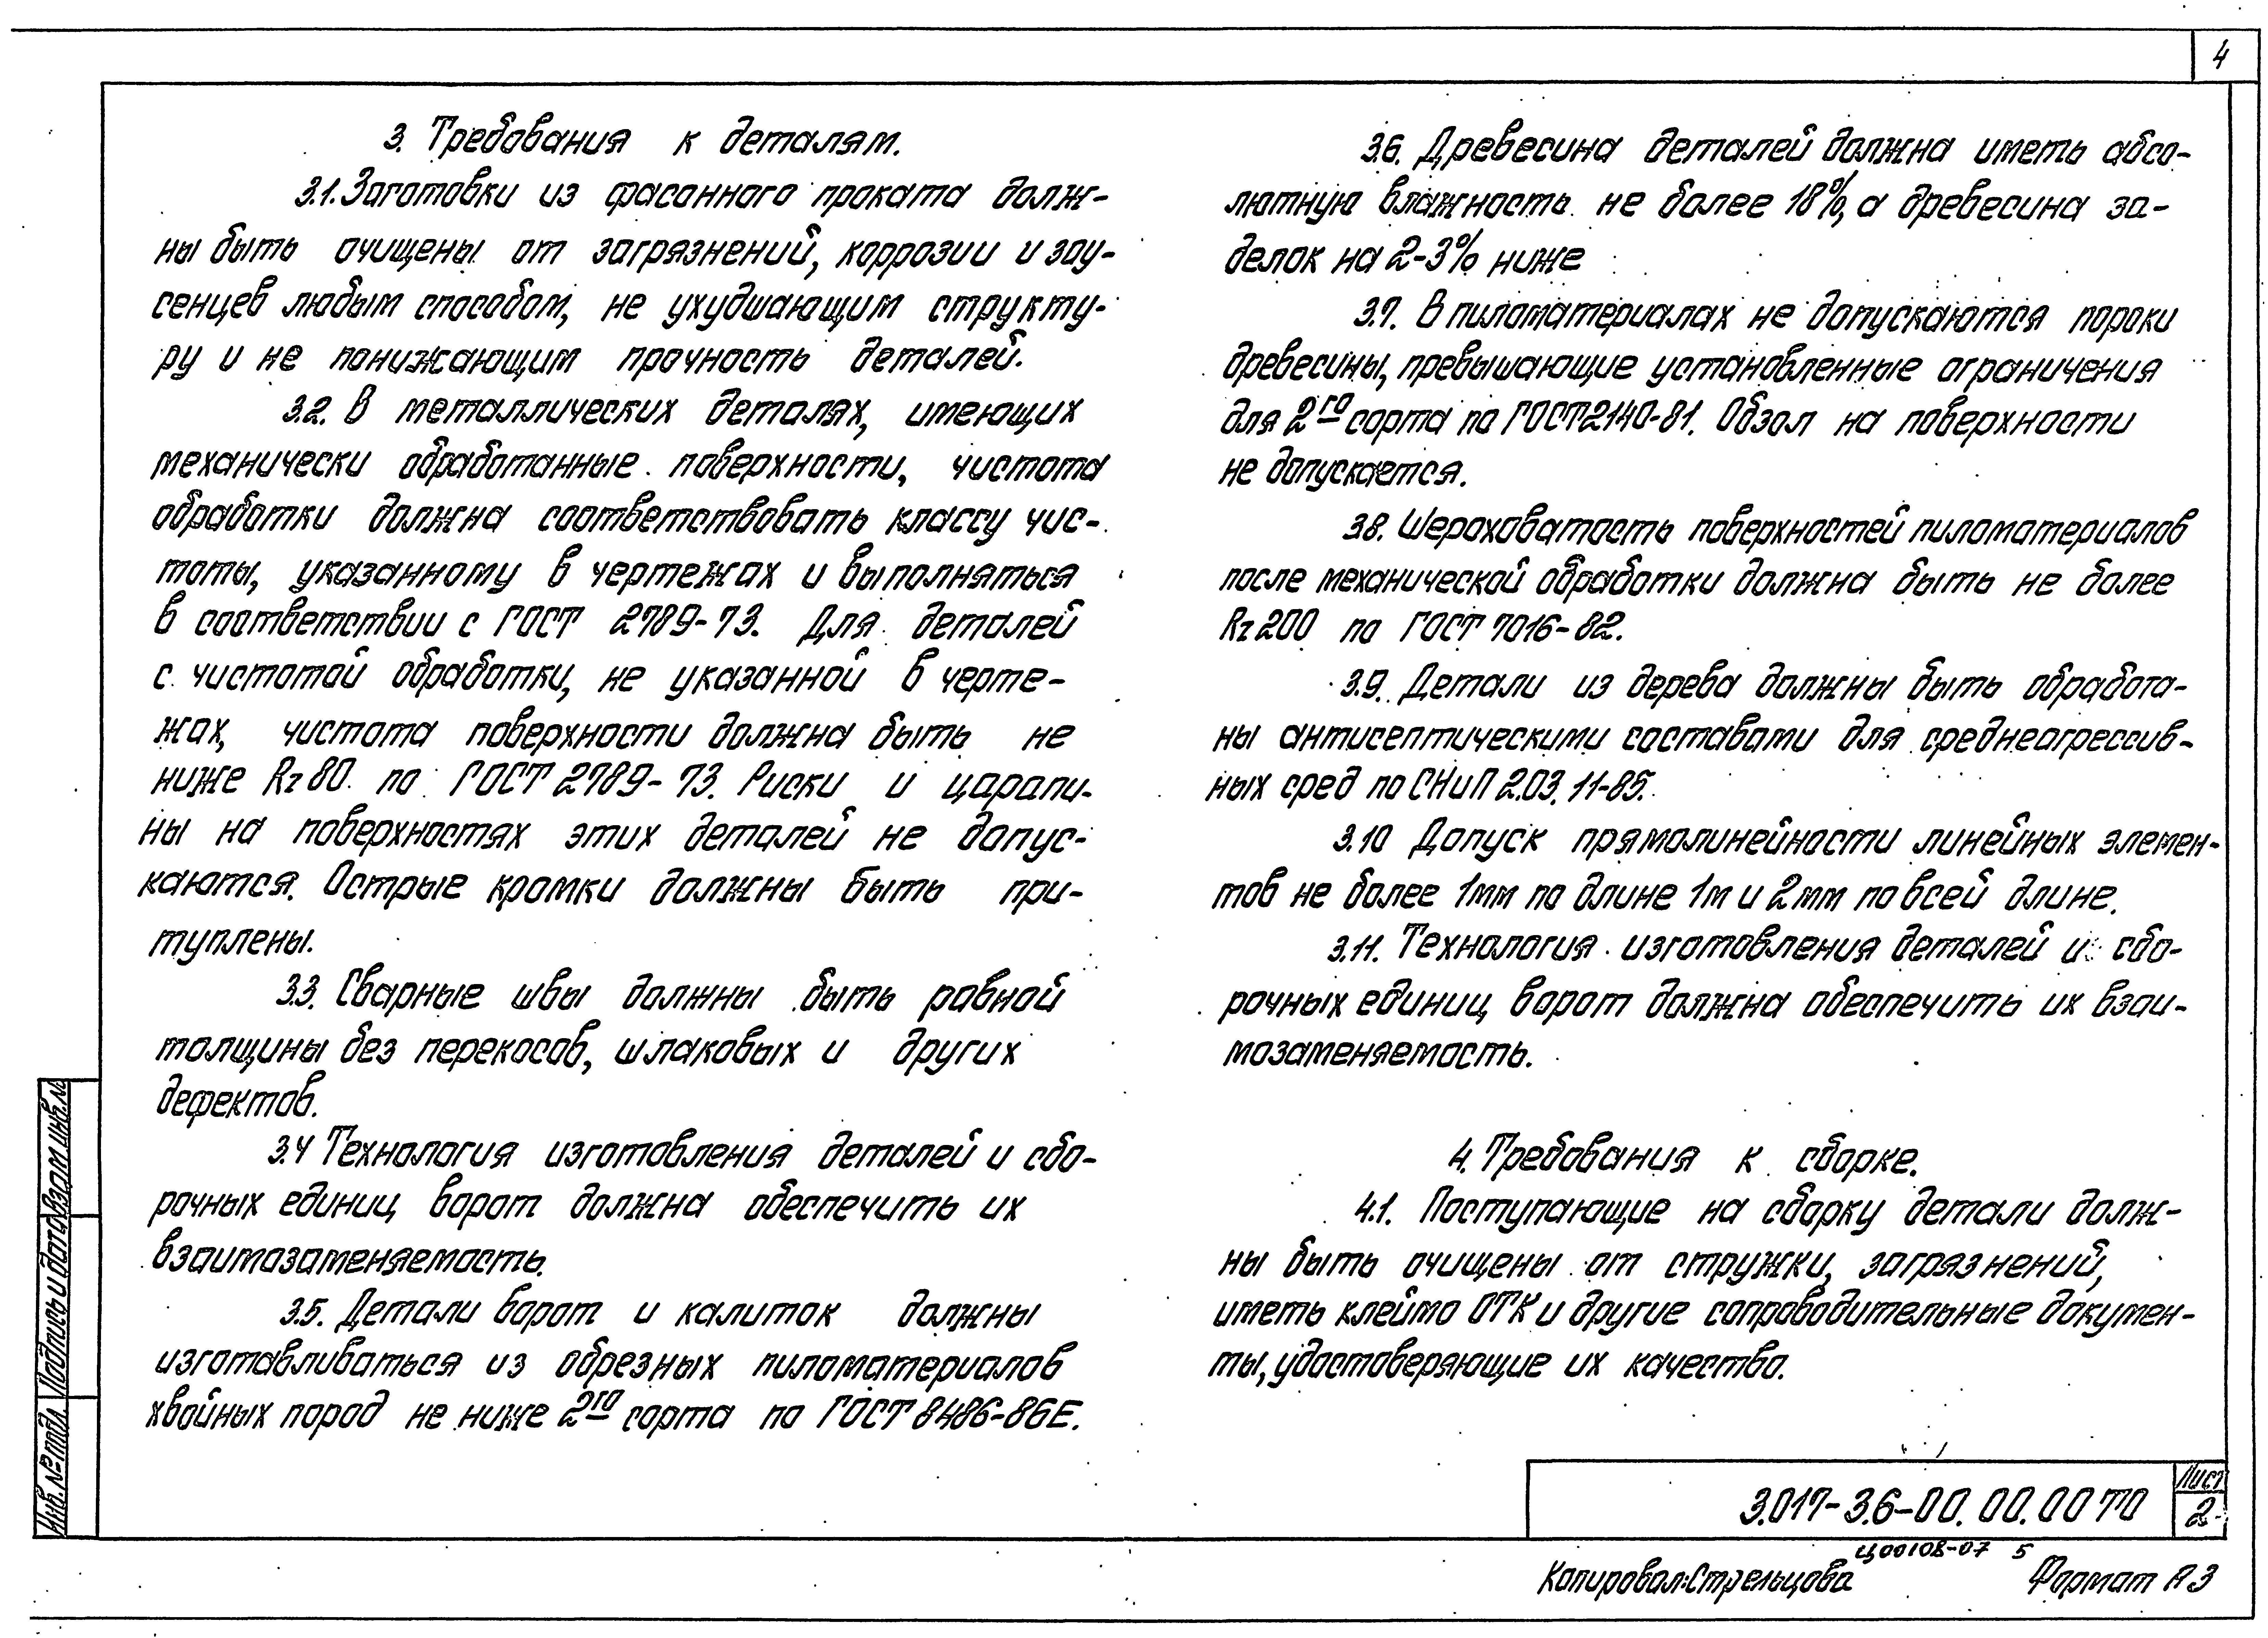 4
3. Требования к деталям.
3.1. Заготовки из фасонного проката долж-
ны быть очищены от загрязнений, коррозии и зау-
сенцев любым способом, не ухудшающим структу-
ру и не понижающим прочность деталей.
3.2. В металлических деталях, имеющих
механически обработанные поверхности, чистота
обработки должна соответствовать классу чис-
тоты, указанному в чертежах и выполняться
в соответствии с ГОСТ 2789-73. Для деталей
с чистотой обработки, не указанной в черте-
жах, чистота поверхности должна быть не
ниже Rz 80 по ГОСТ 2789-73. Риски и царапи-
ны на поверхностях этих деталей не допус-
каются. Острые кромки должны быть при-
туплены.
3.3. Сварные швы должны быть равной
толщины без перекосов, шлаковых и других
дефектов.
3.4 Технология изготовления деталей и сбо-
рочных единиц ворот должна обеспечить их
взаимозаменяемость.
3.5. Детали ворот и калиток должны
изготавливаться из обрезных пиломатериалов
хвойных пород не ниже 2го сорта по ГОСТ 8486-86Е.
3.6. Древесина деталей должна иметь абсо-
лютную влажность не более 18%, а древесина за-
делок на 2-3% ниже
3.7. В пиломатериалах не допускаются пороки
древесины, превышающие установленные ограничения
для 2го сорта по ГОСТ 2140-81. Обзол на поверхности
не допускается.
3.8. Шероховатость поверхностей пиломатериалов
после механической обработки должна быть не более
Rz 200 по ГОСТ 7016-82.
3.9. Детали из дерева должны быть обработа-
ны антисептическими составами для среднеагрессив-
ных сред по СНиП 2.03.11-85.
3.10 Допуск прямолинейности линейных элемен-
тов не более 1мм по длине 1м и 2мм по всей длине.
3.11. Технология изготовления деталей и сбо-
рочных единиц ворот должна обеспечить их взаи-
мозаменяемость.
4. Требования к сборке.
4.1. Поступающие на сборку детали долж-
ны быть очищены от стружки, загрязнений,
иметь клеймо ОТК и другие сопроводительные докумен-
ты, удостоверяющие их качество.
Взам инв.№
Подпись и дата
Инв. № подл.
3.017-3.6-00.00.00 ТО
Лист
2
Ц00108-07 5
Копировал: Стрельцова
Формат А3